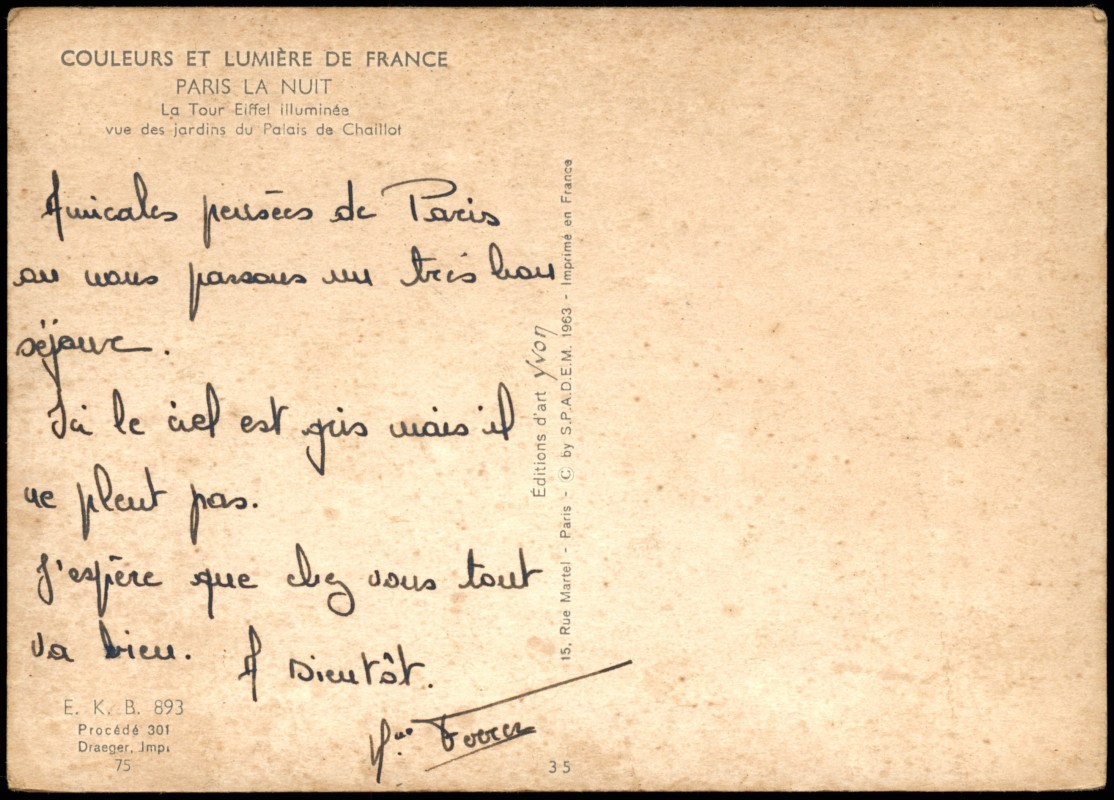 COULEURS ET LUMIÈRE DE FRANCE
PARIS LA NUIT
La Tour Eiffel illuminée
vue des jardins du Palais de Chaillot
Amicales pensées de Paris
ou nous passons un très bon
séjour.
Ici le ciel est gris mais il
ne pleut pas.
J'espère que chez vous tout
va bien. A bientôt.
E. K. B. 893
Procédé 301
Draeger, Imp.
75
Éditions d'art Yvon
15, Rue Martel - Paris - © by S.P.A.D.E.M. 1963 - Imprimé en France
35